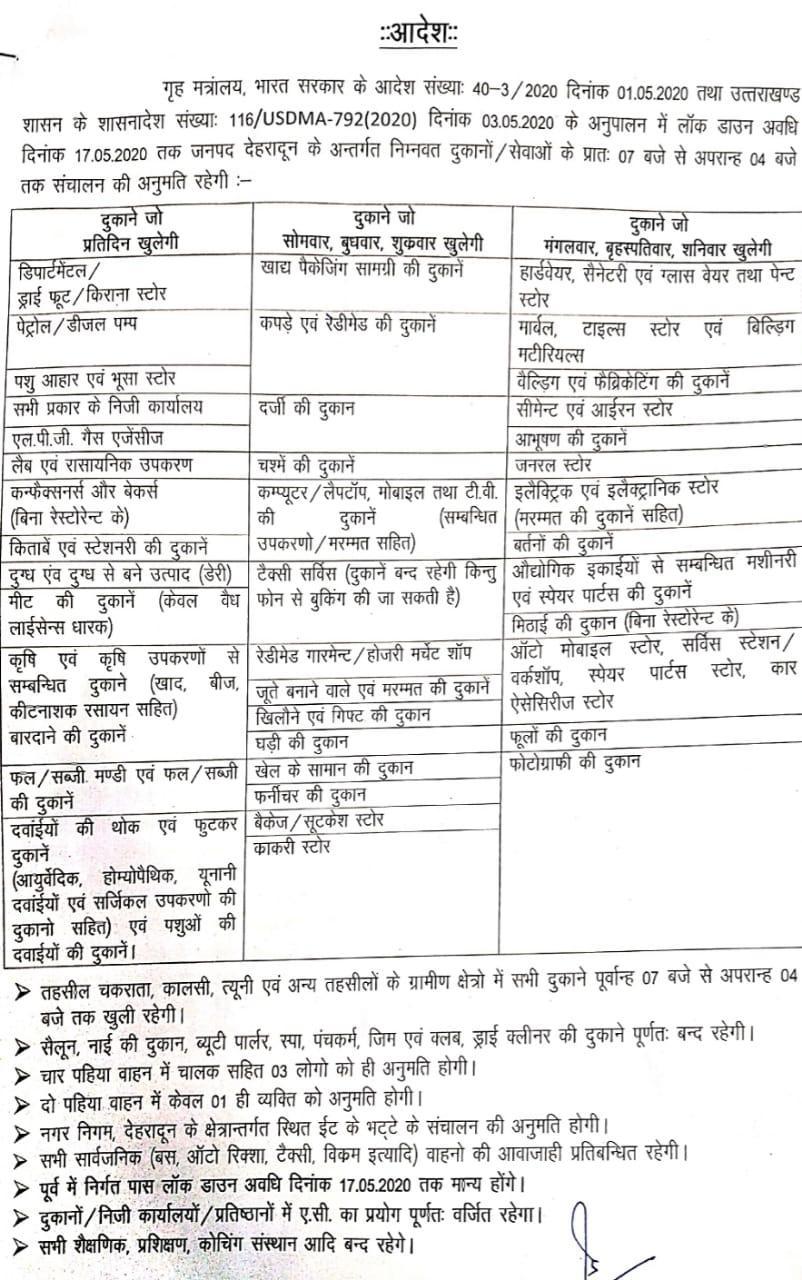 ::आदेश::
गृह मंत्रालय, भारत सरकार के आदेश संख्याः 40-3/2020 दिनांक 01.05.2020 तथा उत्तराखण्ड
शासन के शासनादेश संख्याः 116/USDMA-792(2020) दिनांक 03.05.2020 के अनुपालन में लॉक डाउन अवधि
दिनांक 17.05.2020 तक जनपद देहरादून के अन्तर्गत निम्नवत दुकानों/सेवाओं के प्रातः 07 बजे से अपरान्ह 04 बजे
तक संचालन की अनुमति रहेगी :-
दुकाने जो
प्रतिदिन खुलेगी
डिपार्टमेंटल/
ड्राई फूट/किराना स्टोर
पेट्रोल/डीजल पम्प
पशु आहार एवं भूसा स्टोर
सभी प्रकार के निजी कार्यालय
एल.पी.जी. गैस एजेंसीज
लैब एवं रासायनिक उपकरण
कन्फैक्सनर्स और बेकर्स
(बिना रेस्टोरेन्ट के)
किताबें एवं स्टेशनरी की दुकानें
दुग्ध एंव दुग्ध से बने उत्पाद (डेरी)
मीट की दुकानें (केवल वैध
लाईसेन्स धारक)
कृषि एवं कृषि उपकरणों से
सम्बन्धित दुकाने (खाद, बीज,
कीटनाशक रसायन सहित)
बारदाने की दुकानें
फल/सब्जी मण्डी एवं फल/सब्जी
की दुकानें
दवांईयों की थोक एवं फुटकर
दुकानें
(आयुर्वेदिक, होम्योपैथिक, यूनानी
दवांईयों एवं सर्जिकल उपकरणो की
दुकानो सहित) एवं पशुओं की
दवाईयों की दुकानें।
दुकाने जो
सोमवार, बुधवार, शुक्रवार खुलेगी
खाद्य पैकेजिंग सामग्री की दुकानें
कपड़े एवं रेडीमेड की दुकानें
दर्जी की दुकान
चश्में की दुकानें
कम्प्यूटर/लैपटॉप, मोबाइल तथा टी.वी.
की दुकानें (सम्बन्धित
उपकरणो/मरम्मत सहित)
टैक्सी सर्विस (दुकानें बन्द रहेगी किन्तु
फोन से बुकिंग की जा सकती है)
रेडीमेड गारमेन्ट/होजरी मर्चेट शॉप
जूते बनाने वाले एवं मरम्मत की दुकानें
खिलौने एवं गिफ्ट की दुकान
घड़ी की दुकान
खेल के सामान की दुकान
फर्नीचर की दुकान
बैकेज/सूटकेश स्टोर
काकरी स्टोर
दुकाने जो
मंगलवार, बृहस्पतिवार, शनिवार खुलेगी
हार्डवेयर, सैनेटरी एवं ग्लास वेयर तथा पेन्ट
स्टोर
मार्वल, टाइल्स स्टोर एवं बिल्डिग
मटीरियल्स
वैल्ड़िग एवं फैब्रिकेटिंग की दुकानें
सीमेन्ट एवं आईरन स्टोर
आभूषण की दुकानें
जनरल स्टोर
इलैक्ट्रिक एवं इलैक्ट्रानिक स्टोर
(मरम्मत की दुकानें सहित)
बर्तनों की दुकानें
औद्योगिक इकाईयों से सम्बन्धित मशीनरी
एवं स्पेयर पार्टस की दुकानें
मिठाई की दुकान (बिना रेस्टोरेन्ट के)
ऑटो मोबाइल स्टोर, सर्विस स्टेशन/
वर्कशॉप, स्पेयर पार्टस स्टोर, कार
ऐसेसिरीज स्टोर
फूलों की दुकान
फोटोग्राफी की दुकान
➢ तहसील चकराता, कालसी, त्यूनी एवं अन्य तहसीलों के ग्रामीण क्षेत्रो में सभी दुकाने पूर्वान्ह 07 बजे से अपरान्ह 04
बजे तक खुली रहेगी।
➢ सैलून, नाई की दुकान, ब्यूटी पार्लर, स्पा, पंचकर्म, जिम एवं क्लब, ड्राई क्लीनर की दुकाने पूर्णतः बन्द रहेगी।
➢ चार पहिया वाहन में चालक सहित 03 लोगो को ही अनुमति होगी।
➢ दो पहिया वाहन में केवल 01 ही व्यक्ति को अनुमति होगी।
➢ नगर निगम, देहरादून के क्षेत्रान्तर्गत स्थित ईट के भट्टे के संचालन की अनुमति होगी।
➢ सभी सार्वजनिक (बस, ऑटो रिक्शा, टैक्सी, विकम इत्यादि) वाहनो की आवाजाही प्रतिबन्धित रहेगी।
➢ पूर्व में निर्गत पास लॉक डाउन अवधि दिनांक 17.05.2020 तक मान्य होंगे।
➢ दुकानों/निजी कार्यालयों/प्रतिष्ठानों में ए.सी. का प्रयोग पूर्णतः वर्जित रहेगा।
➢ सभी शैक्षणिक, प्रशिक्षण, कोचिंग संस्थान आदि बन्द रहेगे।